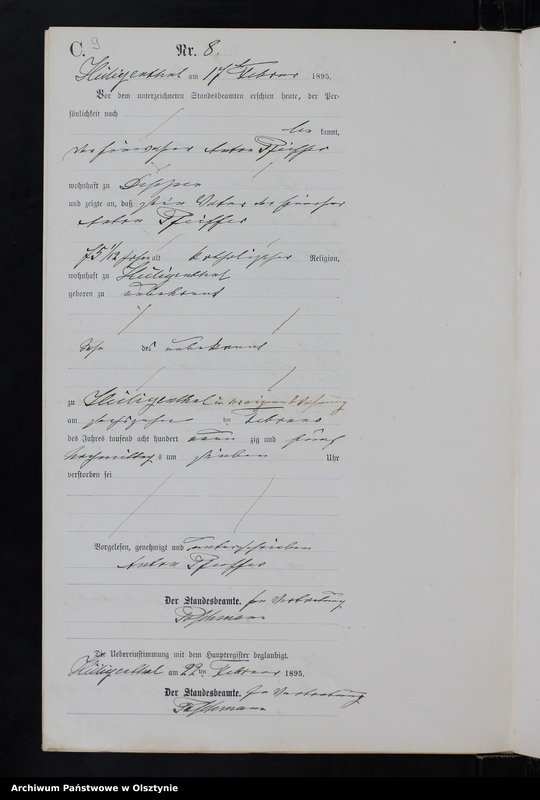 C. 9
Nr. 8.
Heiligenthal am 17ten Februar 1895.
Vor dem unterzeichneten Standesbeamten erschien heute, der Per-
sönlichkeit nach
be kannt,
der Anton Pfeiffer
wohnhaft zu
und zeigte an, daß sein Vater der
Anton Pfeiffer
75 1/12 Jahre alt katholischer Religion,
wohnhaft zu Heiligenthal
geboren zu unbekannt
Sohn des unbekannt
zu Heiligenthal in Wohnung
am sechszehnten ten Februar
des Jahres tausend acht hundert neun zig und fünf
Nachmittag s um sieben Uhr
verstorben sei
Vorgelesen, genehmigt und unterschrieben
Anton Pfeiffer
Der Standesbeamte. In Vertretung
Die Uebereinstimmung mit dem Hauptregister beglaubigt.
Heiligenthal am 22ten Februar 1895.
Der Standesbeamte. In Vertretung
Archiwum Państwowe w Olsztynie